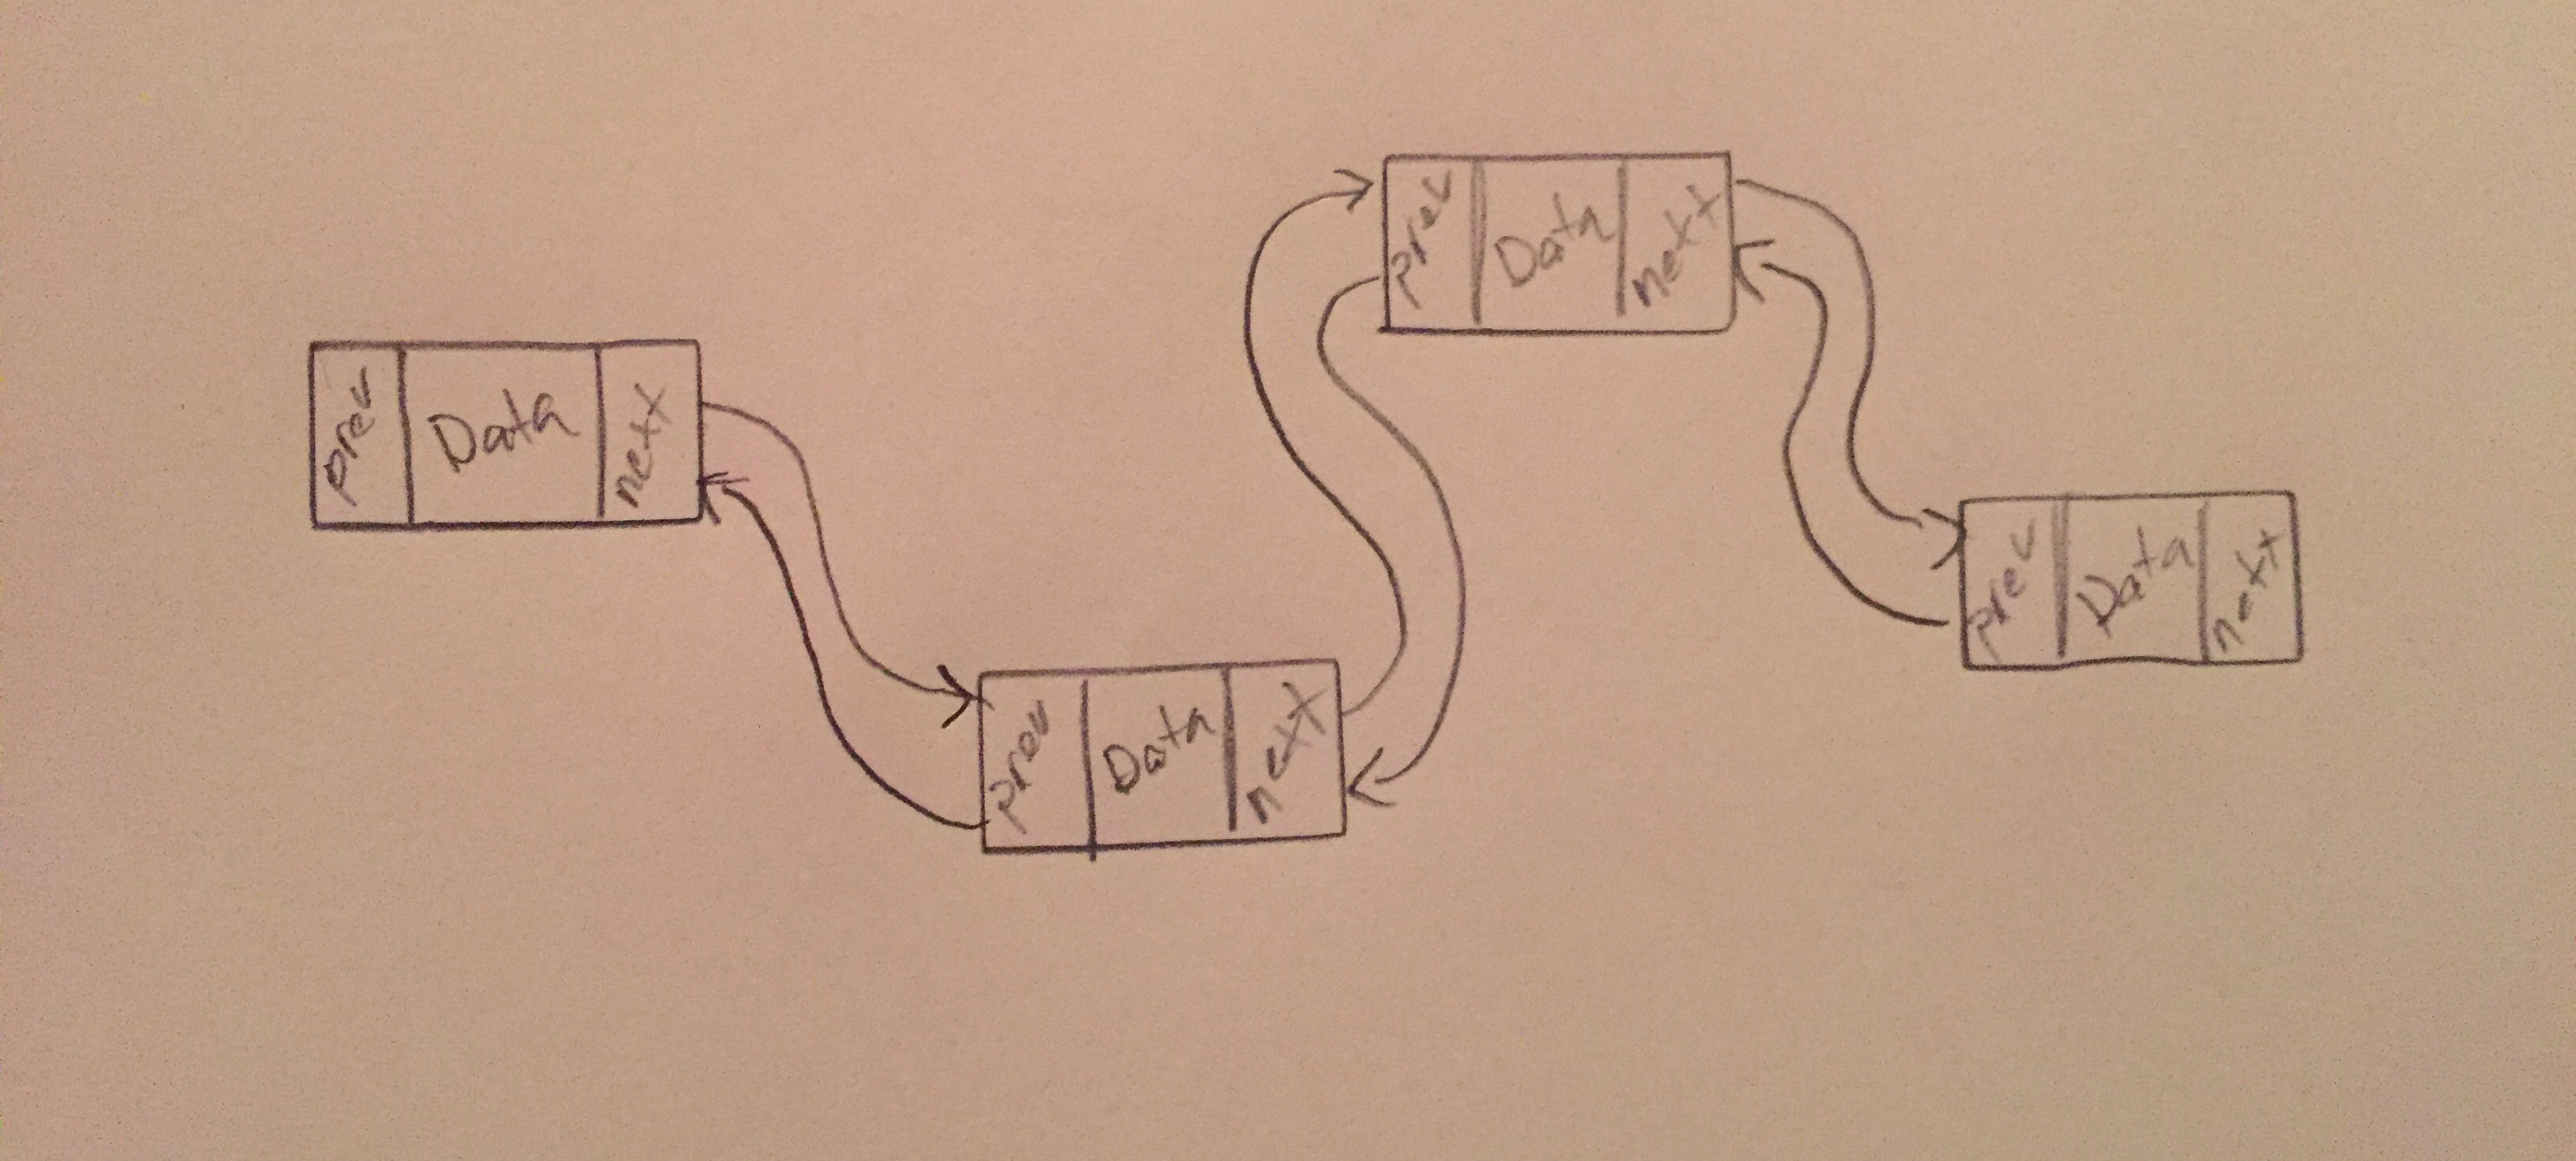 prev Data next
prev Data next
prev Data next
prev Data next